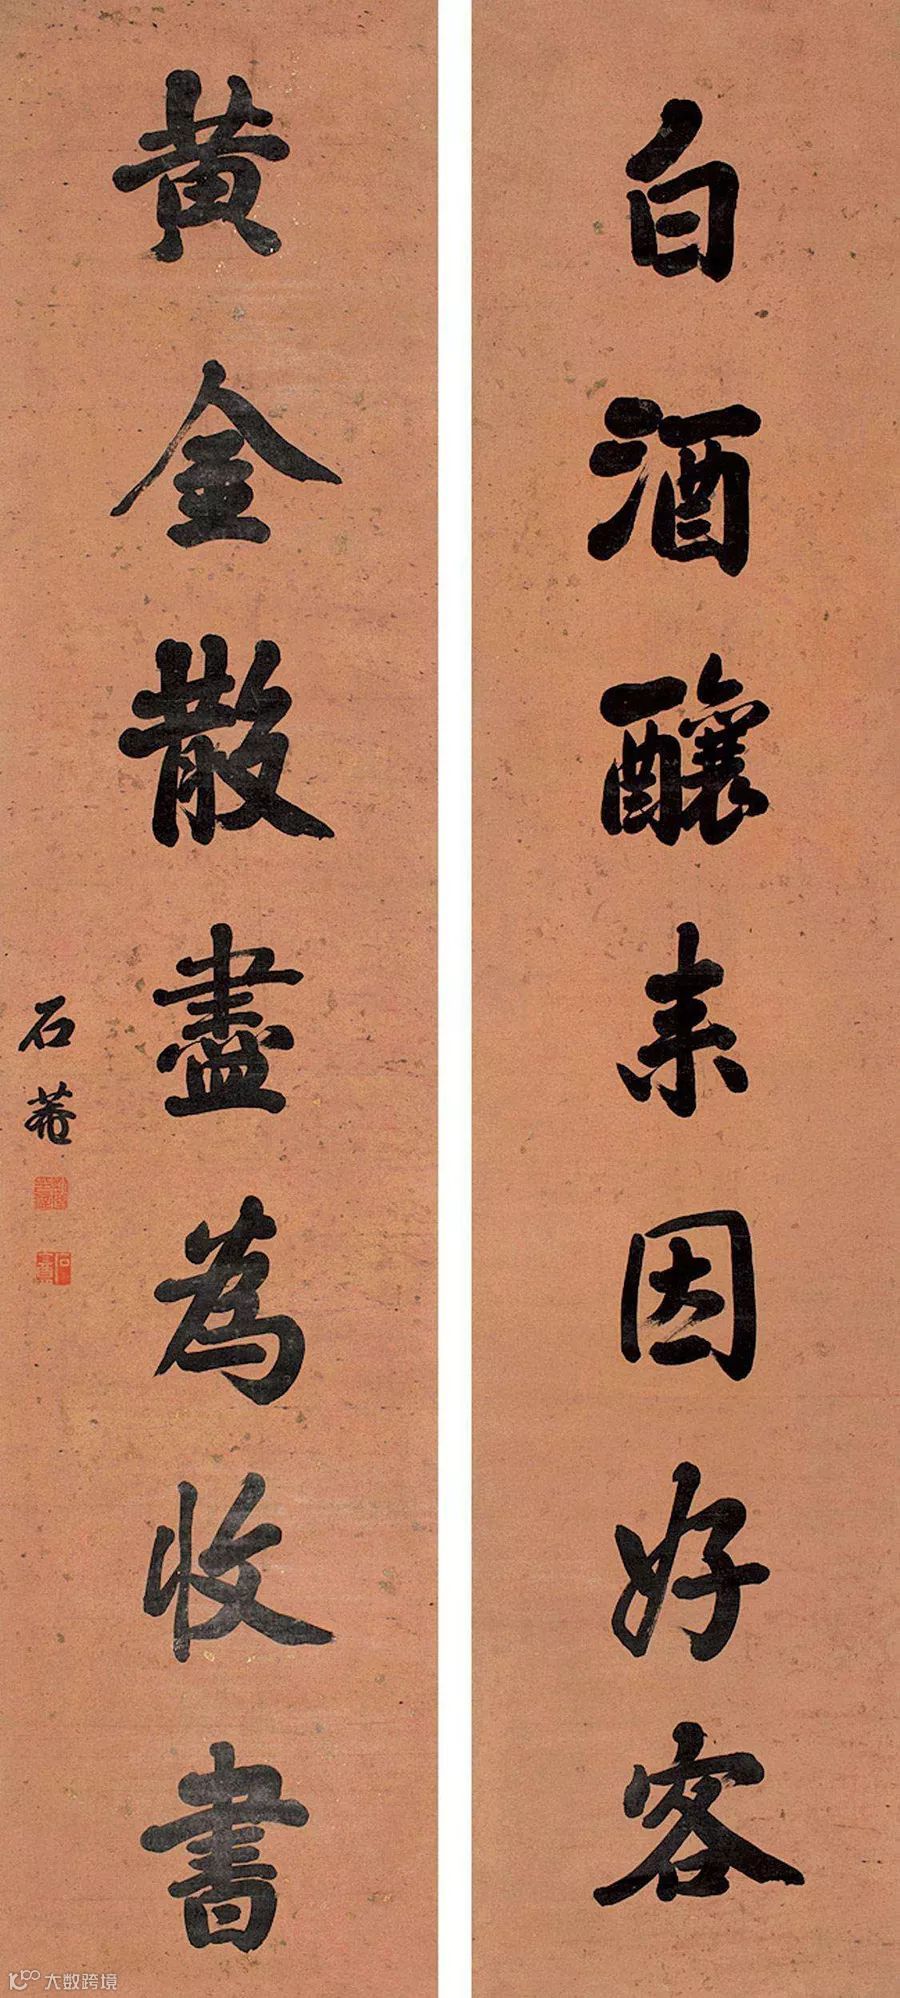 白酒釀來因好客
黃金散盡為收書
石菴
大数跨境